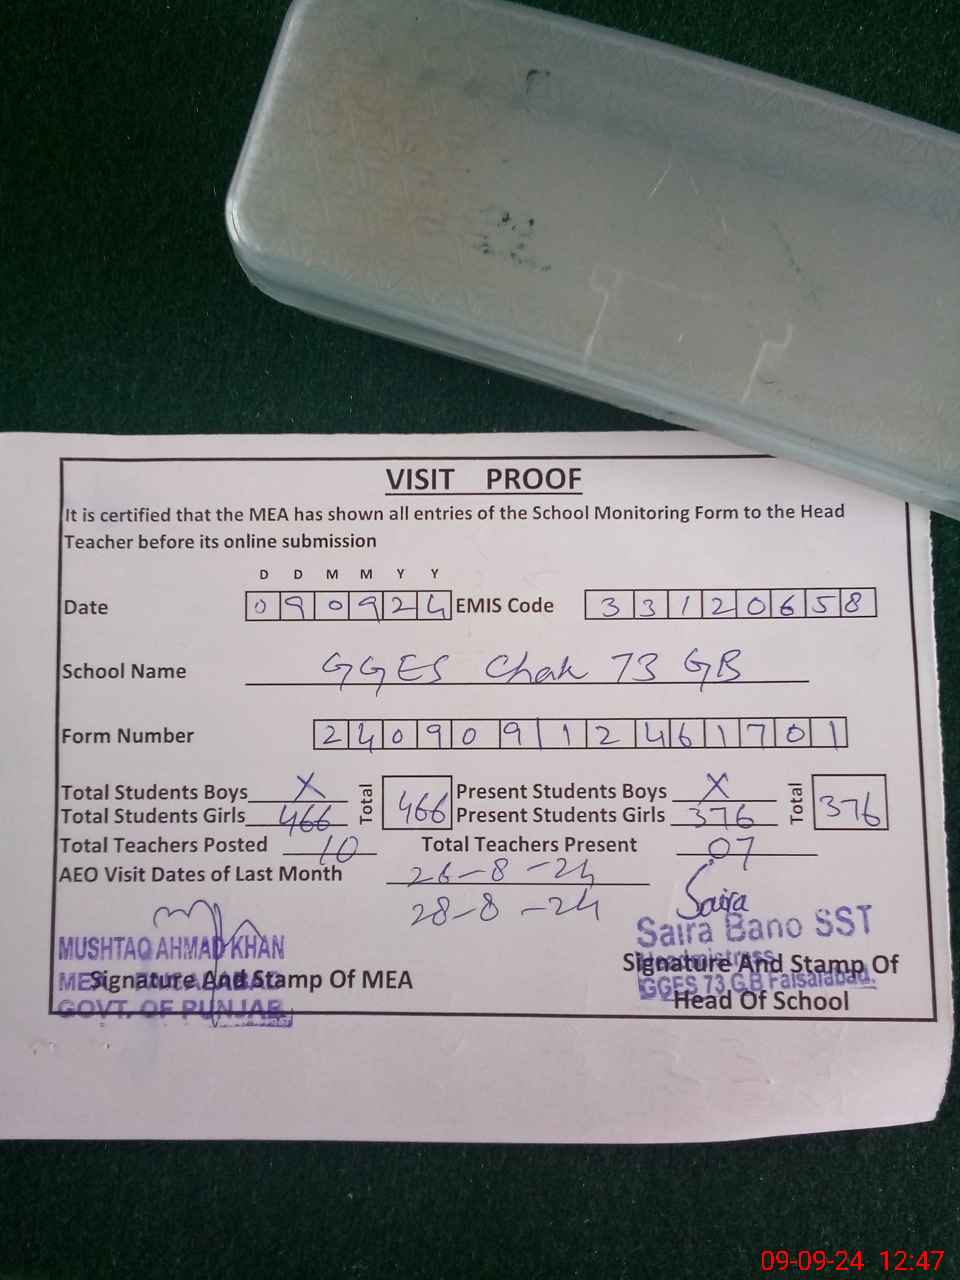 VISIT PROOF
It is certified that the MEA has shown all entries of the School Monitoring Form to the Head
Teacher before its online submission
D D M M Y Y
Date 0 9 0 9 2 4 EMIS Code 3 3 1 2 0 6 5 8
School Name GGES Chak 73 GB
Form Number 2 4 0 9 0 9 1 2 4 6 1 7 0 1
Total Students Boys X Total 466 Present Students Boys X Total 376
Total Students Girls 466 Present Students Girls 376
Total Teachers Posted 10 Total Teachers Present 07
AEO Visit Dates of Last Month 26-8-24
28-8-24
Saira
MUSHTAQ AHMAD KHAN
Saira Bano SST
Headmistress
Signature And Stamp Of MEA
Signature And Stamp Of
GGES 73 G.B Faisalabad.
Head Of School
GOVT. OF PUNJAB
09-09-24 12:47